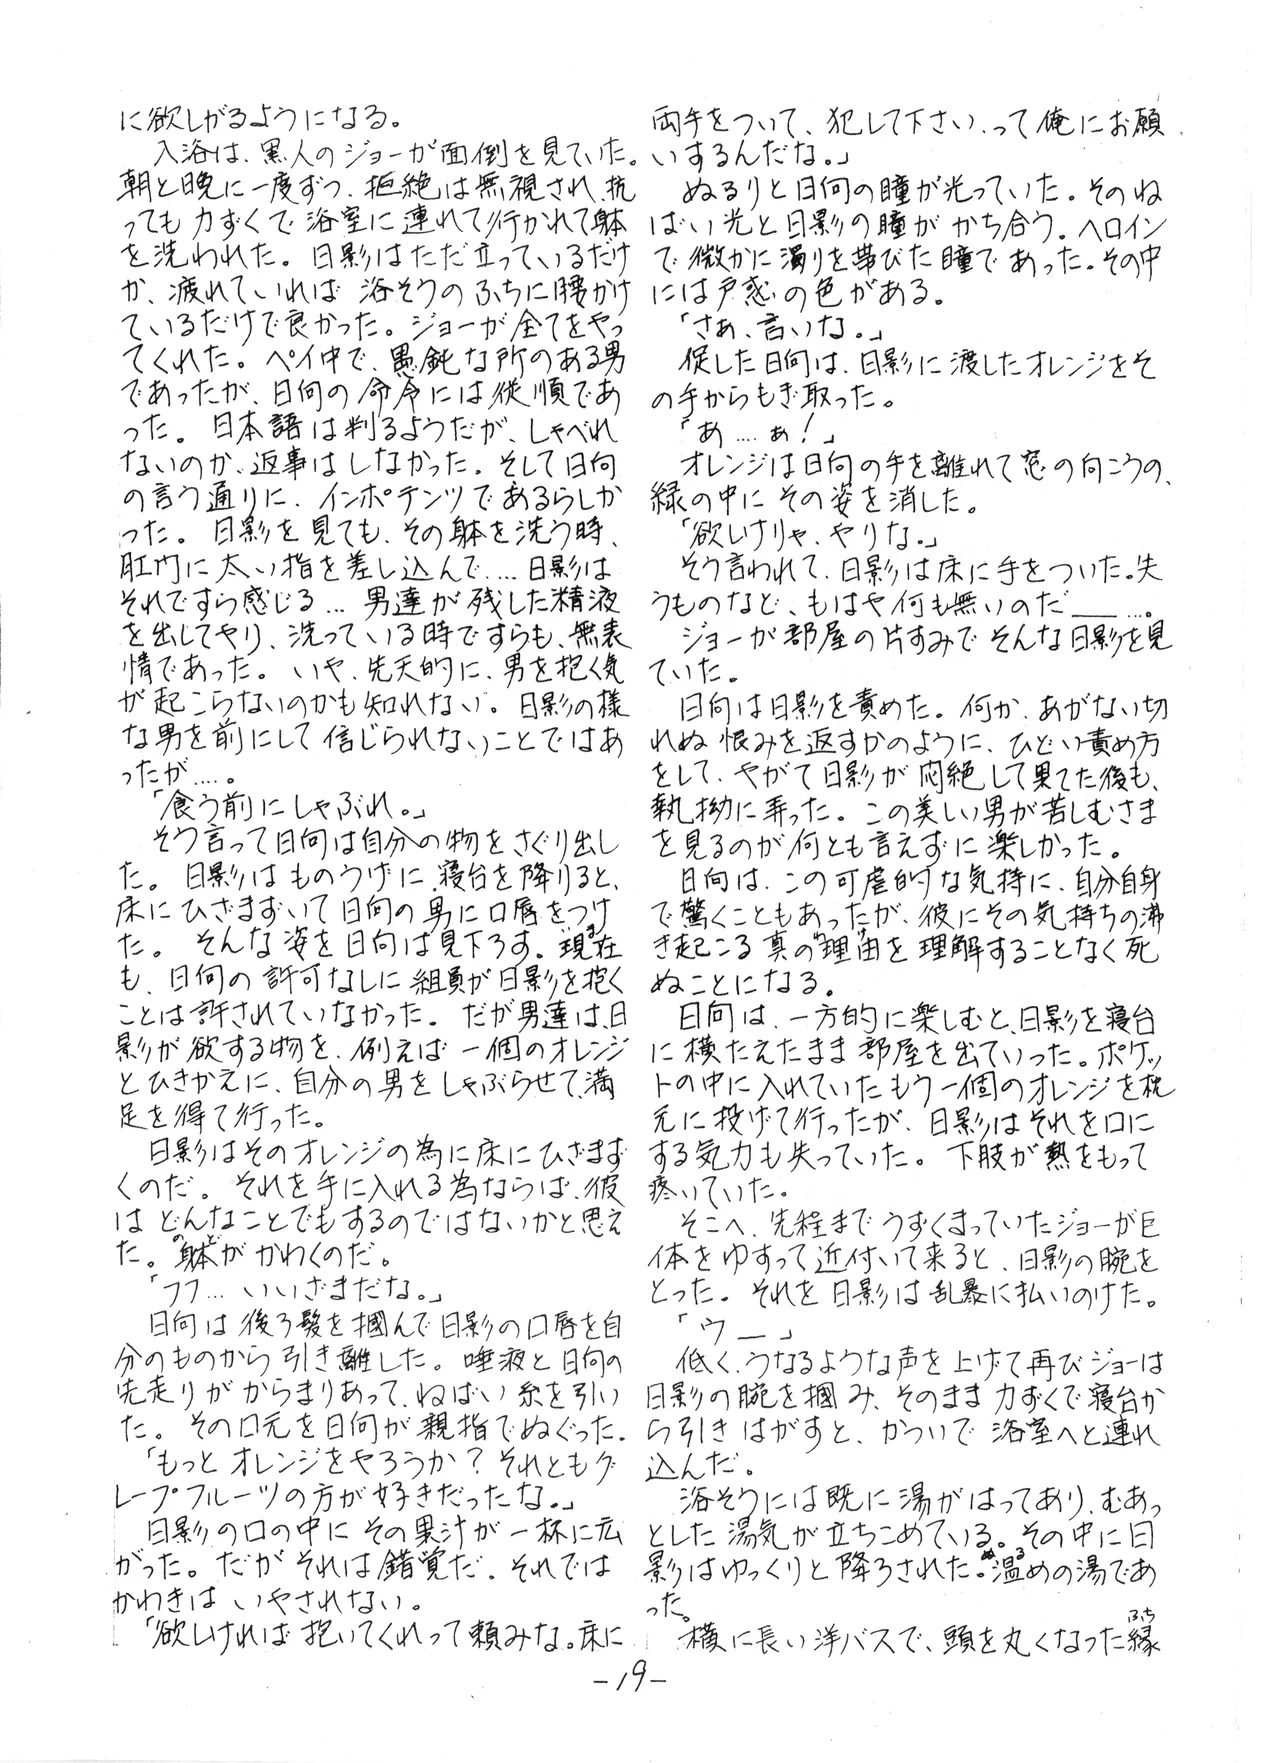 に欲しがるようになる。
入浴は、黒人のジョーが面倒を見ていた。
朝と晩に一度ずつ、拒絶は無視され、抗
っても力ずくで浴室に連れて行かれて躰
を洗われた。日影はただ立っているだけ
か、疲れていれば浴そうのふちに腰かけ
ているだけで良かった。ジョーが全てをやっ
てくれた。ペイ中で、愚鈍な所のある男
であったが、日向の命令には従順であ
った。日本語は判るようだが、しゃべれ
ないのか、返事はしなかった。そして日向
の言う通りに、インポテンツであるらしか
った。日影を見ても、その躰を洗う時、
肛門に太い指を差し込んで、…日影は
それですら感じる…男達が残した精液
を出してやり、洗っている時ですらも、無表
情であった。いや、先天的に、男を抱く気
が起こらないのかも知れない。日影の様
な男を前にして信じられないことではあ
ったが…。
「食う前にしゃぶれ。」
そう言って日向は自分の物をさぐり出し
た。日影はものうげに寝台を降りると、
床にひざまずいて日向の男に口唇をつけ
た。そんな姿を日向は見下ろす。現在(いま)
も、日向の許可なしに組員が日影を抱く
ことは許されていなかった。だが男達は、日
影が欲する物を、例えば一個のオレンジ
とひきかえに、自分の男をしゃぶらせて、満
足を得て行った。
日影はそのオレンジの為に床にひざまず
くのだ。それを手に入れる為ならば、彼
はどんなことでもするのではないかと思え
た。躰(のど)がかわくのだ。
「フフ…いいざまだな。」
日向は後ろ髪を摑んで日影の口唇を自
分のものから引き離した。唾液と日向の
先走りがからまりあって、ねばい糸を引い
た。その口元を日向が親指でぬぐった。
「もっとオレンジをやろうか？それともグ
レープフルーツの方が好きだったな。」
日影の口の中にその果汁が一杯に広
がった。だがそれは錯覚だ。それでは
かわきはいやされない。
「欲しければ抱いてくれって頼みな。床に
両手をついて、犯して下さい、って俺にお願
いするんだな。」
ぬるりと日向の瞳が光っていた。そのね
ばい光と日影の瞳がかち合う。ヘロイン
で微かに濁りを帯びた瞳であった。その中
には戸惑の色がある。
「さぁ、言いな。」
促した日向は、日影に渡したオレンジをそ
の手からもぎ取った。
「あ……ぁ！」
オレンジは日向の手を離れて窓の向こうの、
緑の中にその姿を消した。
「欲しけりゃ、やりな。」
そう言われて、日影は床に手をついた。失
うものなど、もはや何も無いのだ――…。
ジョーが部屋の片すみでそんな日影を見
ていた。
日向は日影を責めた。何か、あがない切
れぬ恨みを返すかのように、ひどい責め方
をして、やがて日影が悶絶して果てた後も、
執拗に弄った。この美しい男が苦しむさま
を見るのが何とも言えずに楽しかった。
日向は、この可虐的な気持に、自分自身
で驚くこともあったが、彼にその気持ちの沸
き起こる真の理由を理解することなく死
ぬことになる。
日向は、一方的に楽しむと、日影を寝台
に横たえたまま部屋を出ていった。ポケッ
トの中に入れていたもう一個のオレンジを枕
元に投げて行ったが、日影はそれを口に
する気力も失っていた。下肢が熱をもって
疼いていた。
そこへ、先程までうずくまっていたジョーが巨
体をゆすって近付いて来ると、日影の腕を
とった。それを日影は乱暴に払いのけた。
「ウ――」
低く、うなるような声を上げて再びジョーは
日影の腕を摑み、そのまま力ずくで寝台か
ら引きはがすと、かついで浴室へと連れ
込んだ。
浴そうには既に湯がはってあり、むあっ
とした湯気が立ちこめている。その中に日
影はゆっくりと降ろされた。温(ぬる)めの湯であ
った。
横に長い洋バスで、頭を丸くなった縁(ふち)
-19-